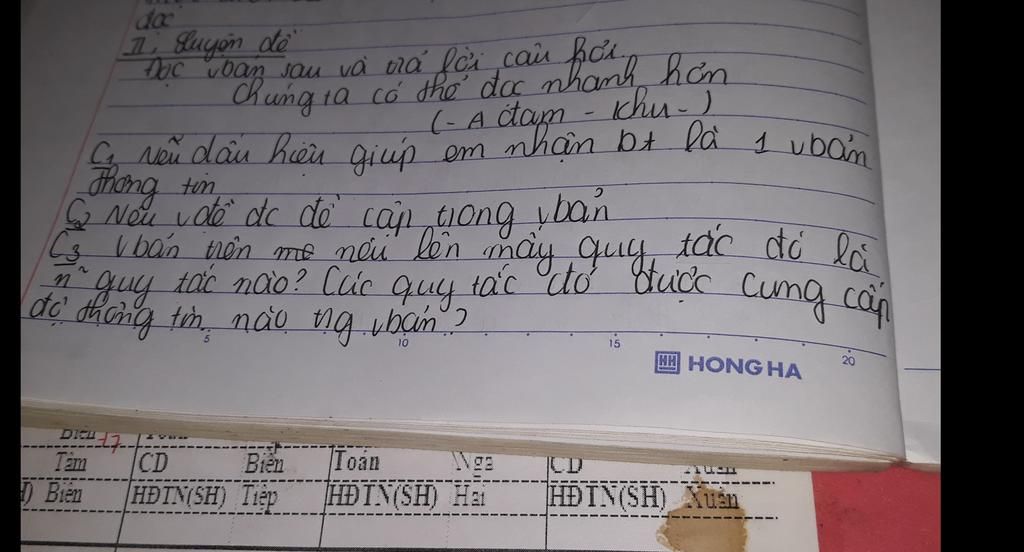 đọc
II, Luyện đề
Đọc vbản sau và trả lời câu hỏi.
Chúng ta có thể đọc nhanh hơn
(- A đam - Khu -)
C1 Nêu dấu hiệu giúp em nhận bt là 1 vbản
thông tin
C2 Nêu vđề đc đề cập trong vbản
C3 Vbản trên nêu lên mấy quy tắc đó là
n~ quy tắc nào? Các quy tắc đó được cung cấp
độ thông tin nào tng vbản?
5 10 15 20
HH HONG HA
Biên 77 Toán
Tâm CD Biên Toán Nga CD Xuân
) Biên HĐTN(SH) Tiệp HĐTN(SH) Hai HĐTN(SH) Xuân